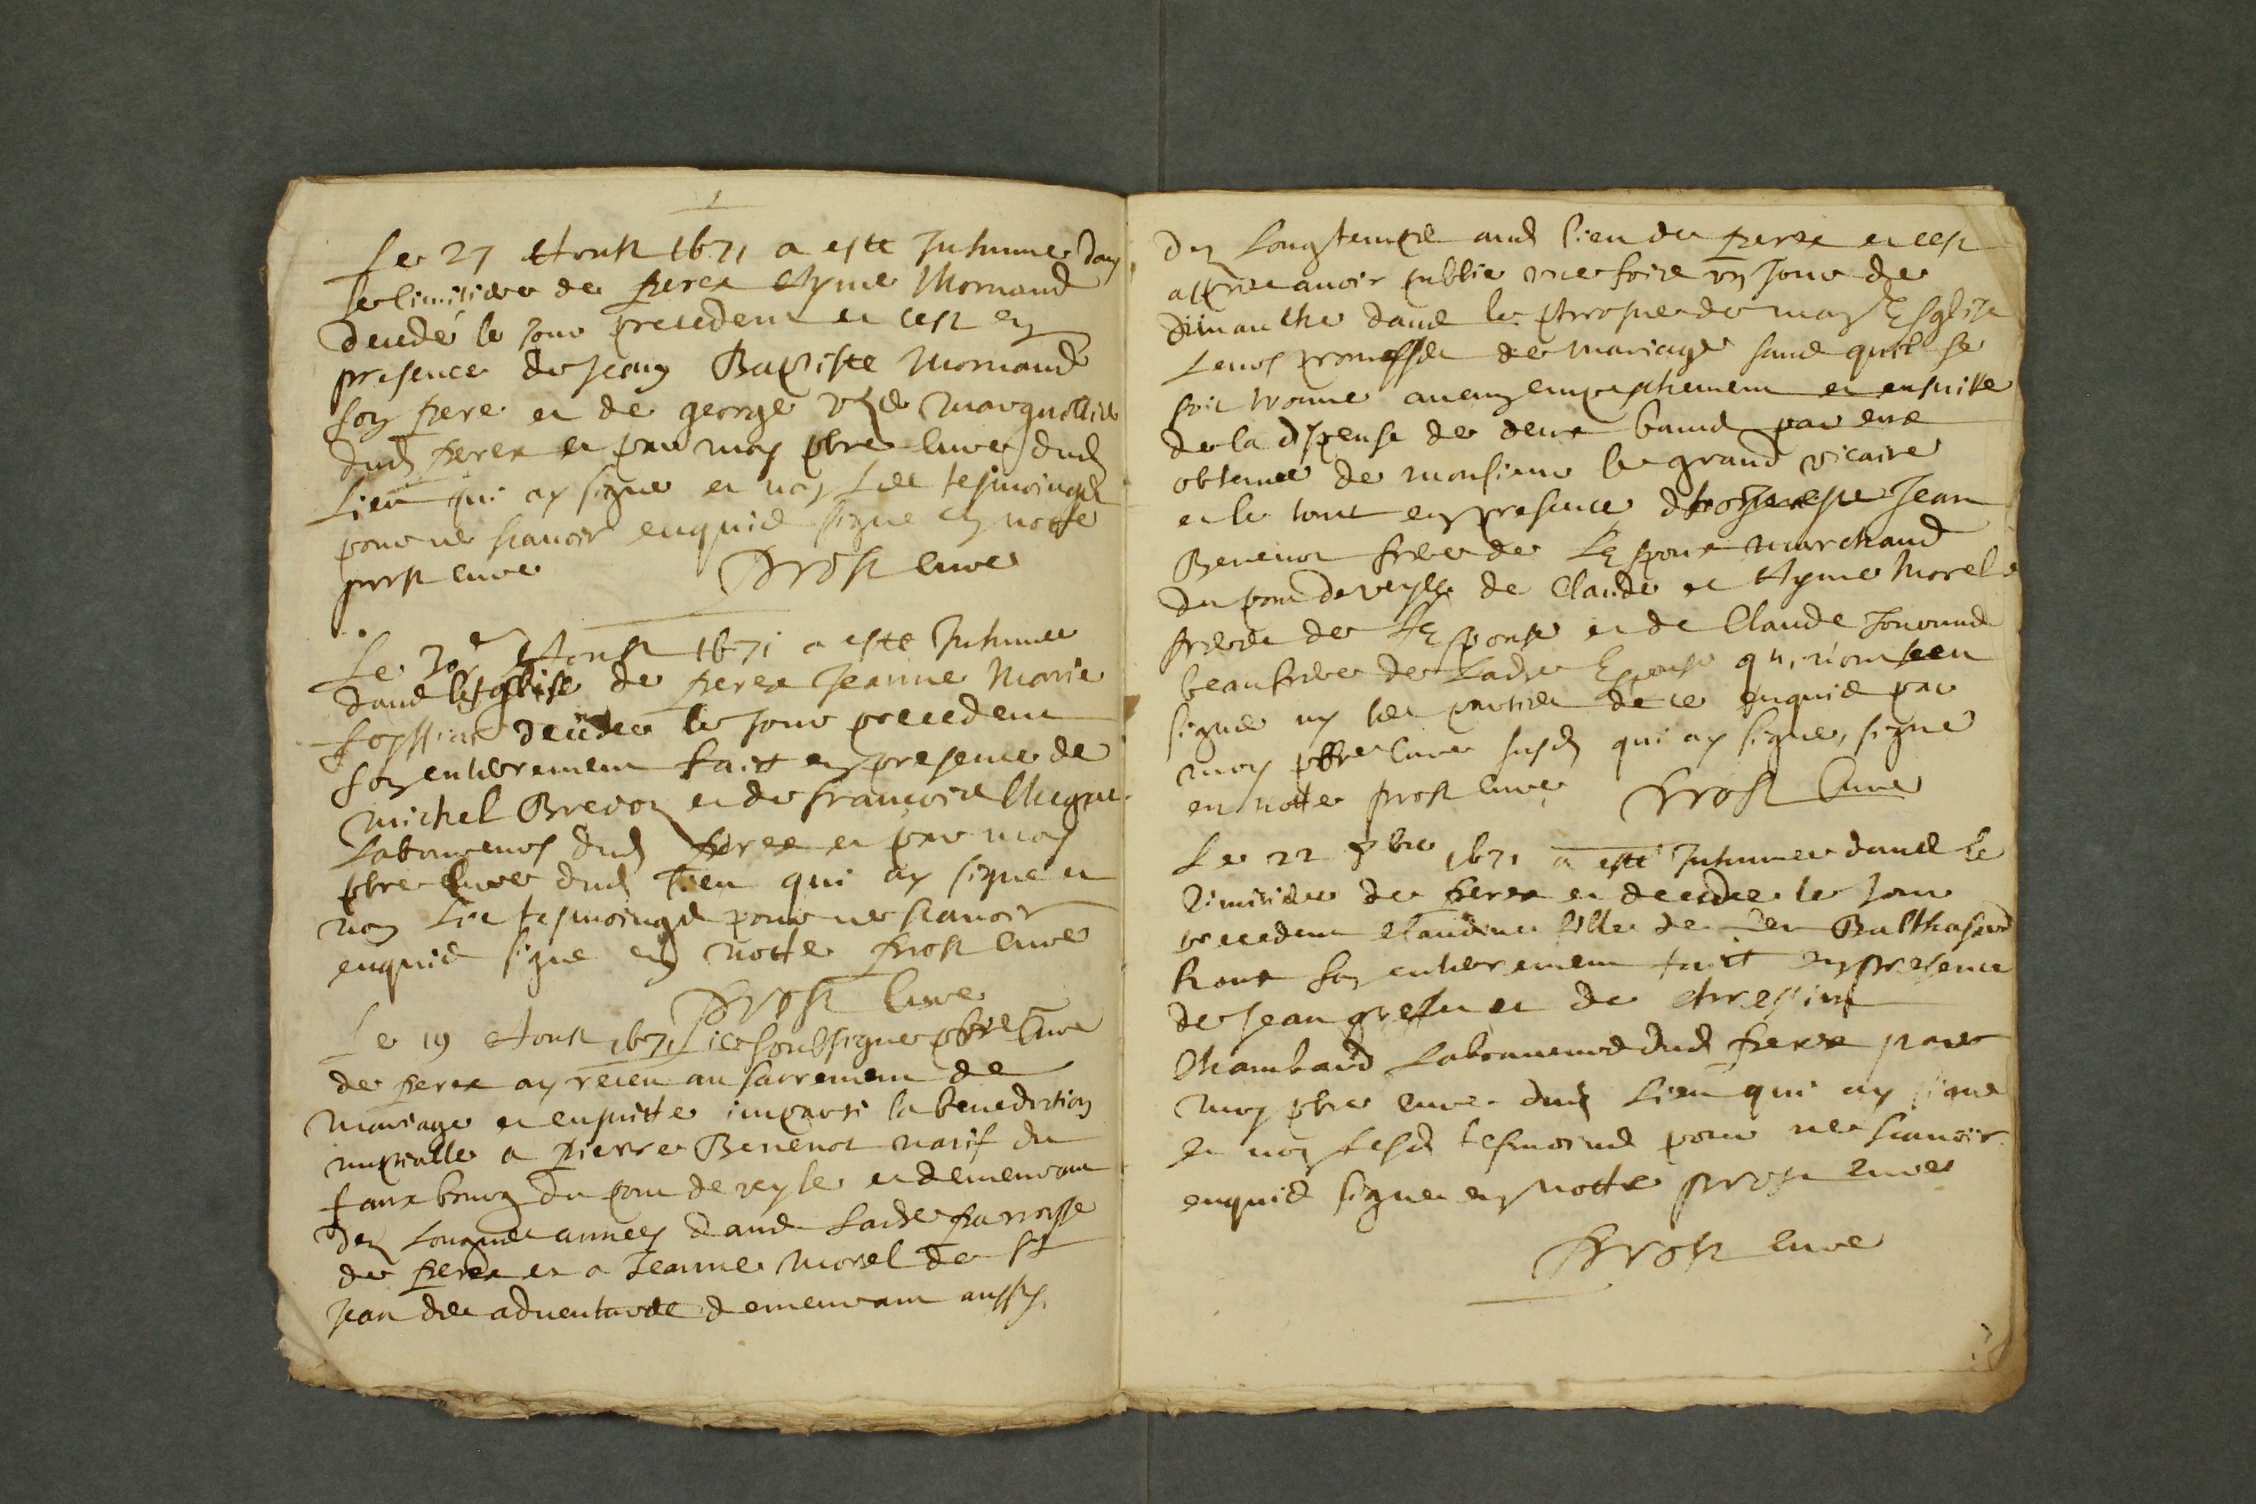 Le 27 Aoust 1671 a este Inhumee dans
le Cimitiere de perex Ayme Mornand
decedé le Jour precedent et cest en
presence de Jean Baptiste Mornand
son frere et de george marguillier
dud perex et par moy pbre cure dud
Lieu qui ay signe et non Les tesmoingts
pour ne scavoir enquis signe en notte
prost cure Prost cure
Le Aoust 1671 a este Inhumee
dans lesglise de perex Jeanne Marie
decedee le Jour precedent
son enterrement faict en presence de
michel Brevon et de francois
Laboureurs dud perex et par moy
pbre Cure dud Lieu qui ay signe et
non Les tesmoingts pour ne scavoir
enquis signe en notte prost cure
Prost Cure
Le 19 Aoust 1671 Je soubsigne pbre Cure
de perex ay receu au sacrement de
Mariage et ensuitte imparti la benediction
nuptialle a pierre Benenot natif du
fauxbourg du pont de veyle et demeurant
des Longues années dans Ladte parroisse
de perex et a Jeanne Morel de St
Jean des adventures demeurant aussy
des Longtemps aud lieu de perex et cest
apres avoir publie une fois un Jour de
dimanche dans le prosne de mon Esglise
Leurs promesses de mariage sans quil se
soit trouve aucung empeschement et ensuitte
de la dispense de deux bancs par eux
obtenue de monsieur le grand vicaire
et le tout en presence de Jean
Benenot frere de Lespoux marchand
du pont de veyle de Claude et Ayme Morel
freres de Lespouse et de Claude
beaufrere de Ladte Espouse qui n'ont sceu
signer ny les parties de ce enquis par
moy pbre Cure susd qui ay signe, signe
en notte prost cure Prost Cure
Le 22 7bre 1671 a este Inhumee dans le
Cimitiere de perex et decedee le Jour
precedent Claudine fille de feu Balthasard
son enterrement faict en presence
de Jean et de
Chambard Laboureurs dud perex par
moy pbre cure dud Lieu qui ay signe
et non Lesd tesmoins pour ne scavoir
enquis signe en notte prost cure
Prost cure